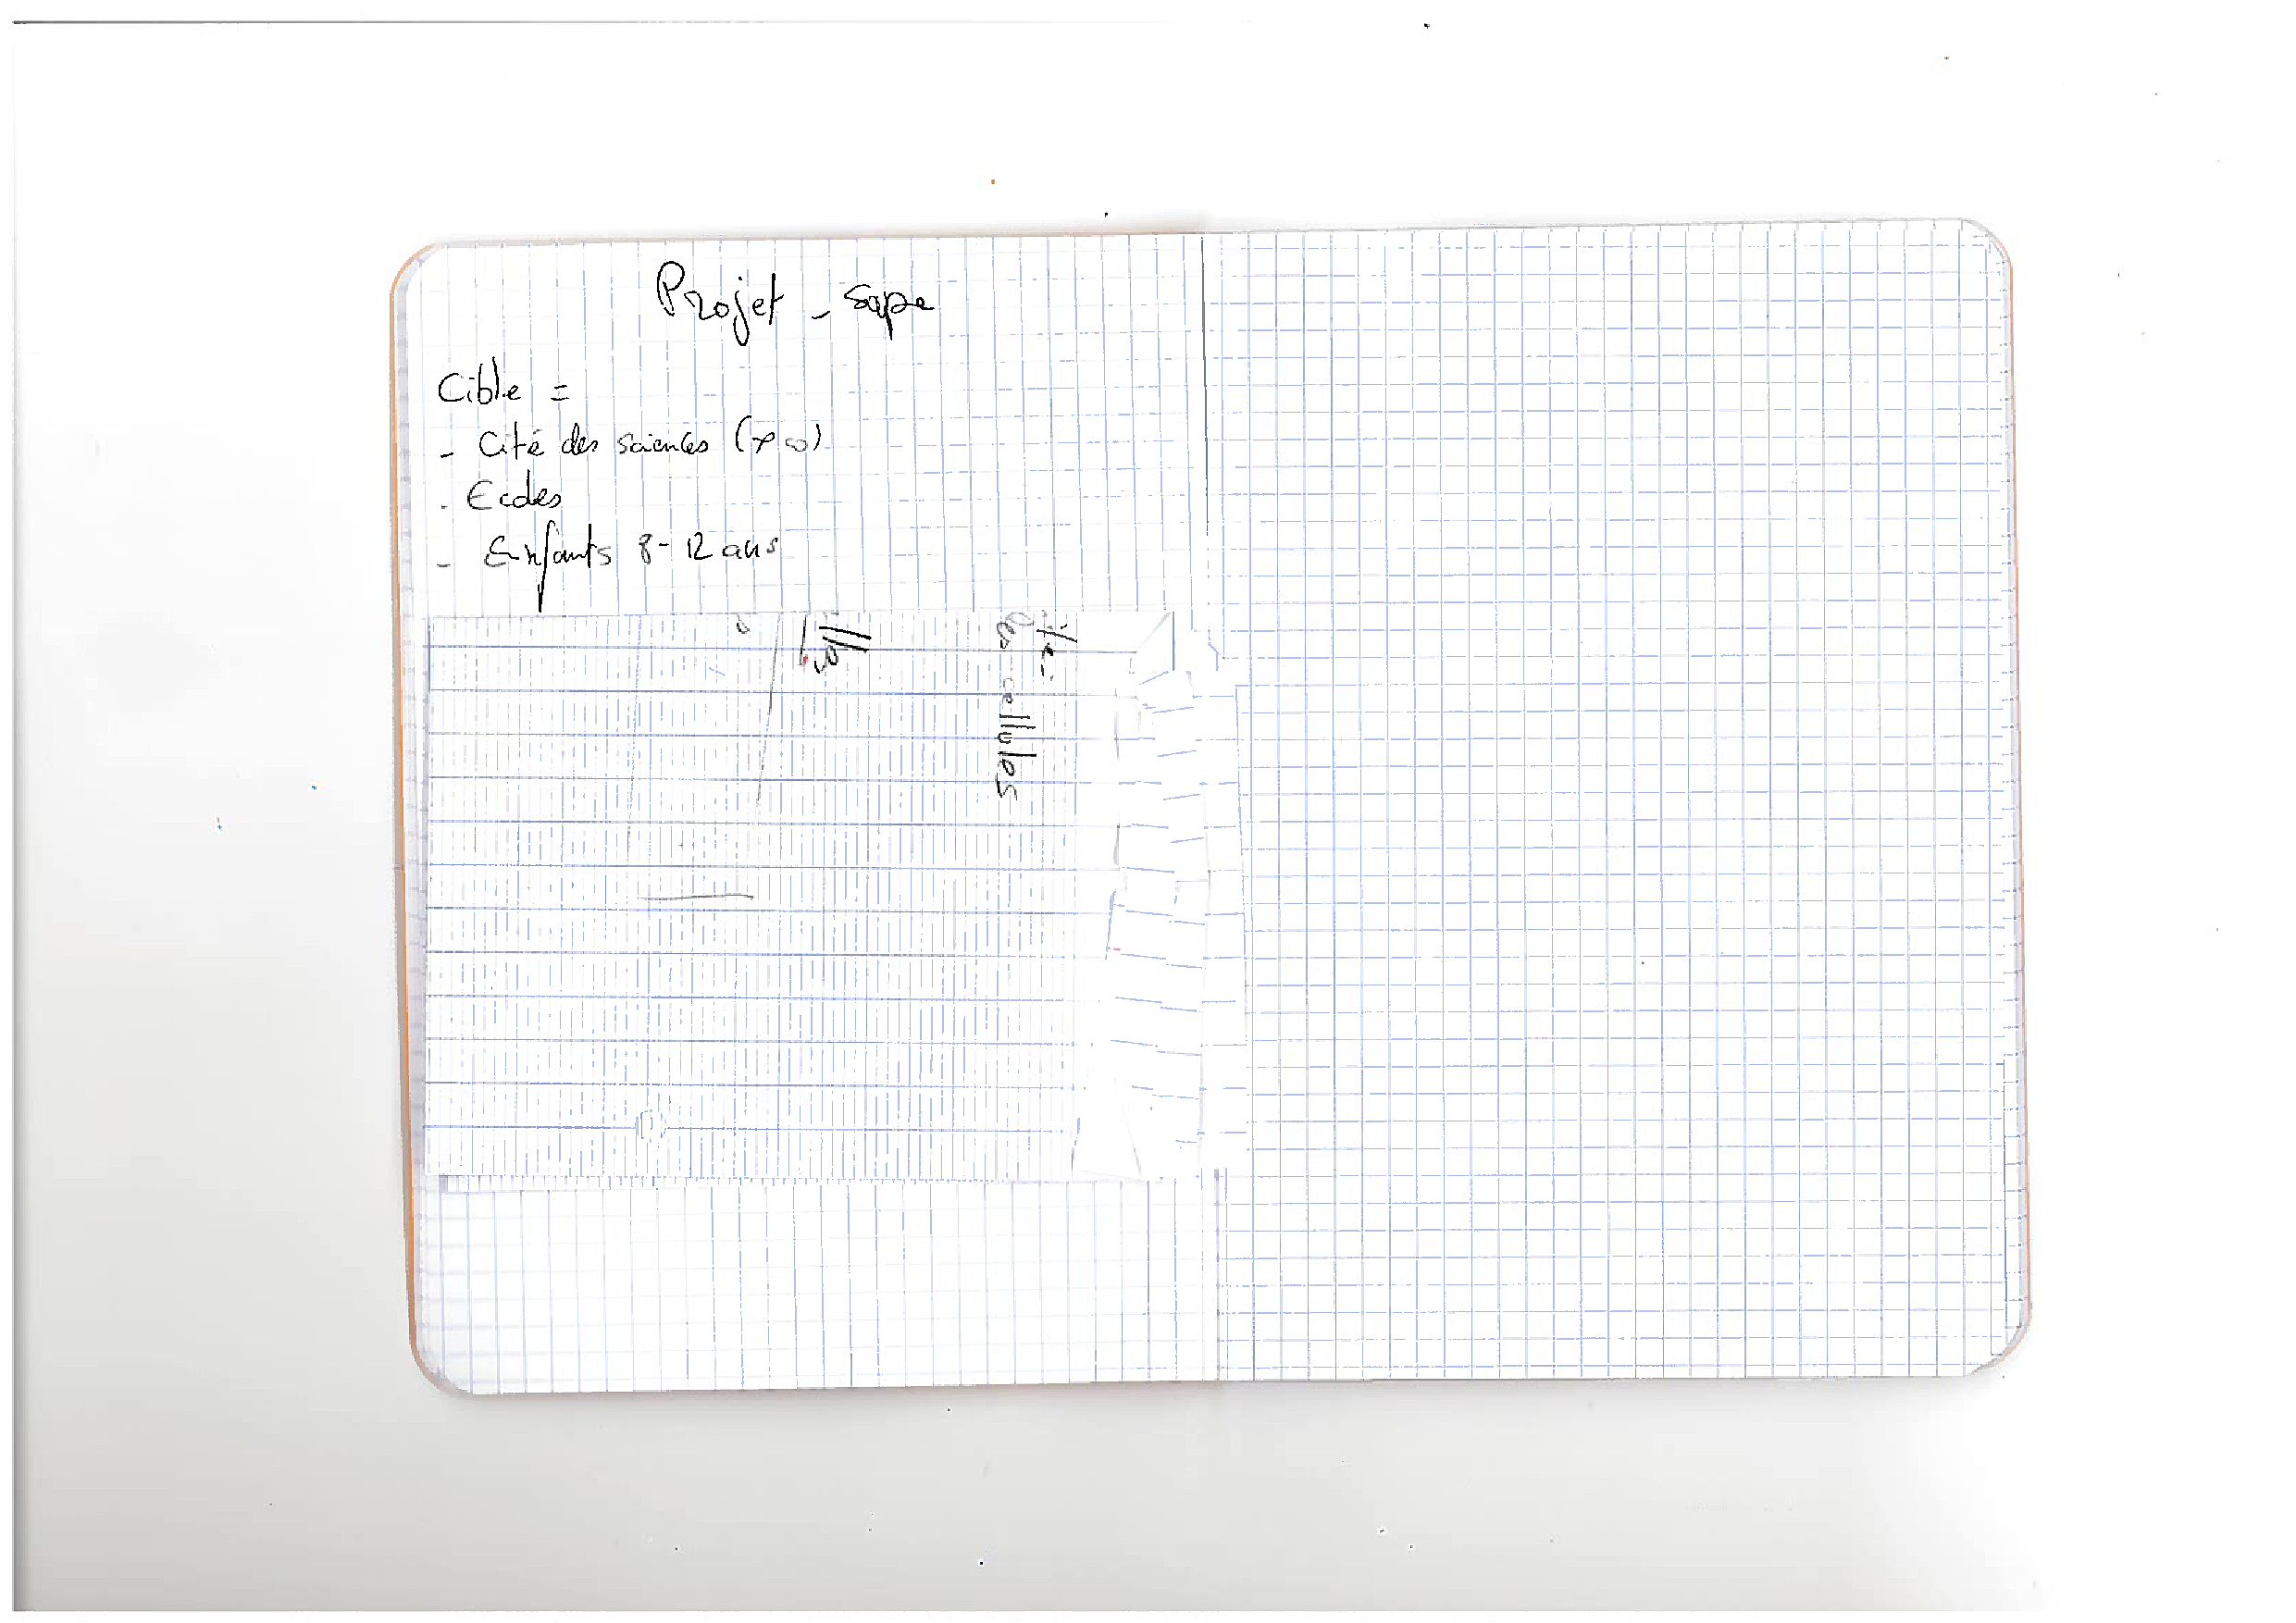 Projet - sape
Cible =
- Cité des sciences
- Ecoles
- Enfants 8-12 ans
cellules